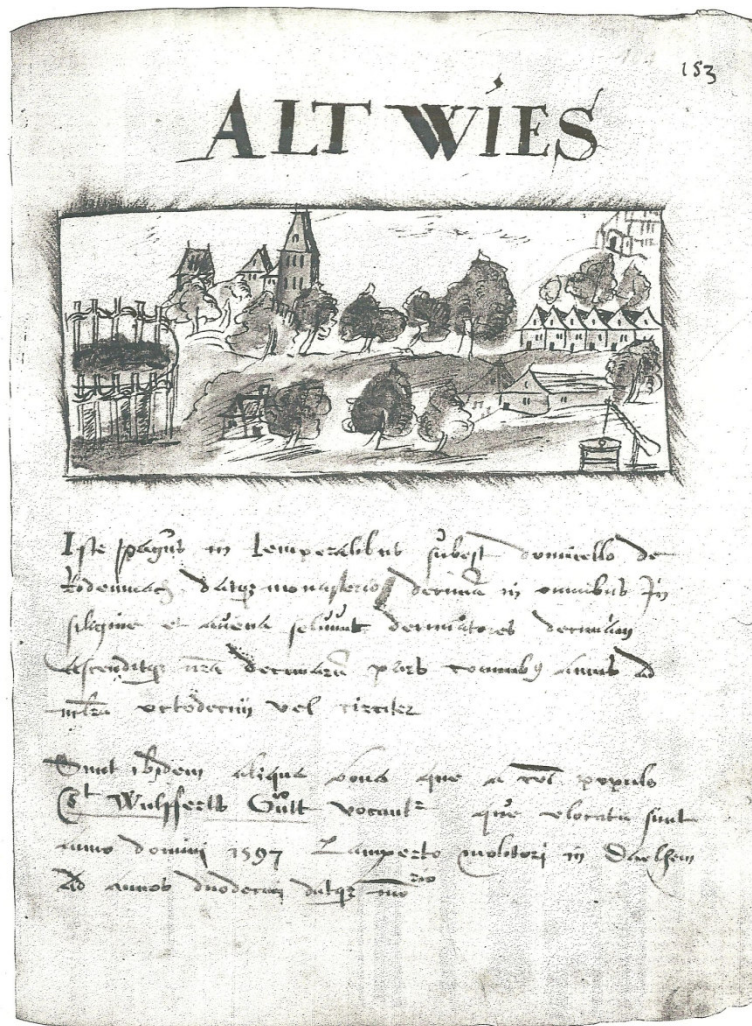 153
ALT WIES
Iste pagus in temporalibus subest domicello de
Rodenmach datqz monasterio decimā in omnibus In
siligine et avena solvunt decimatores decimam
ascenditqz nrā decimarū pars comunibus annis ad
mlrā octodecim vel circiter
Sunt ibidem aliqua bona que a populo
St Wulfferts Gůtt vocantr que elocata sunt
anno domini 1597 Lamperto molitori in Daelhem
Ad annos duodecim datqz